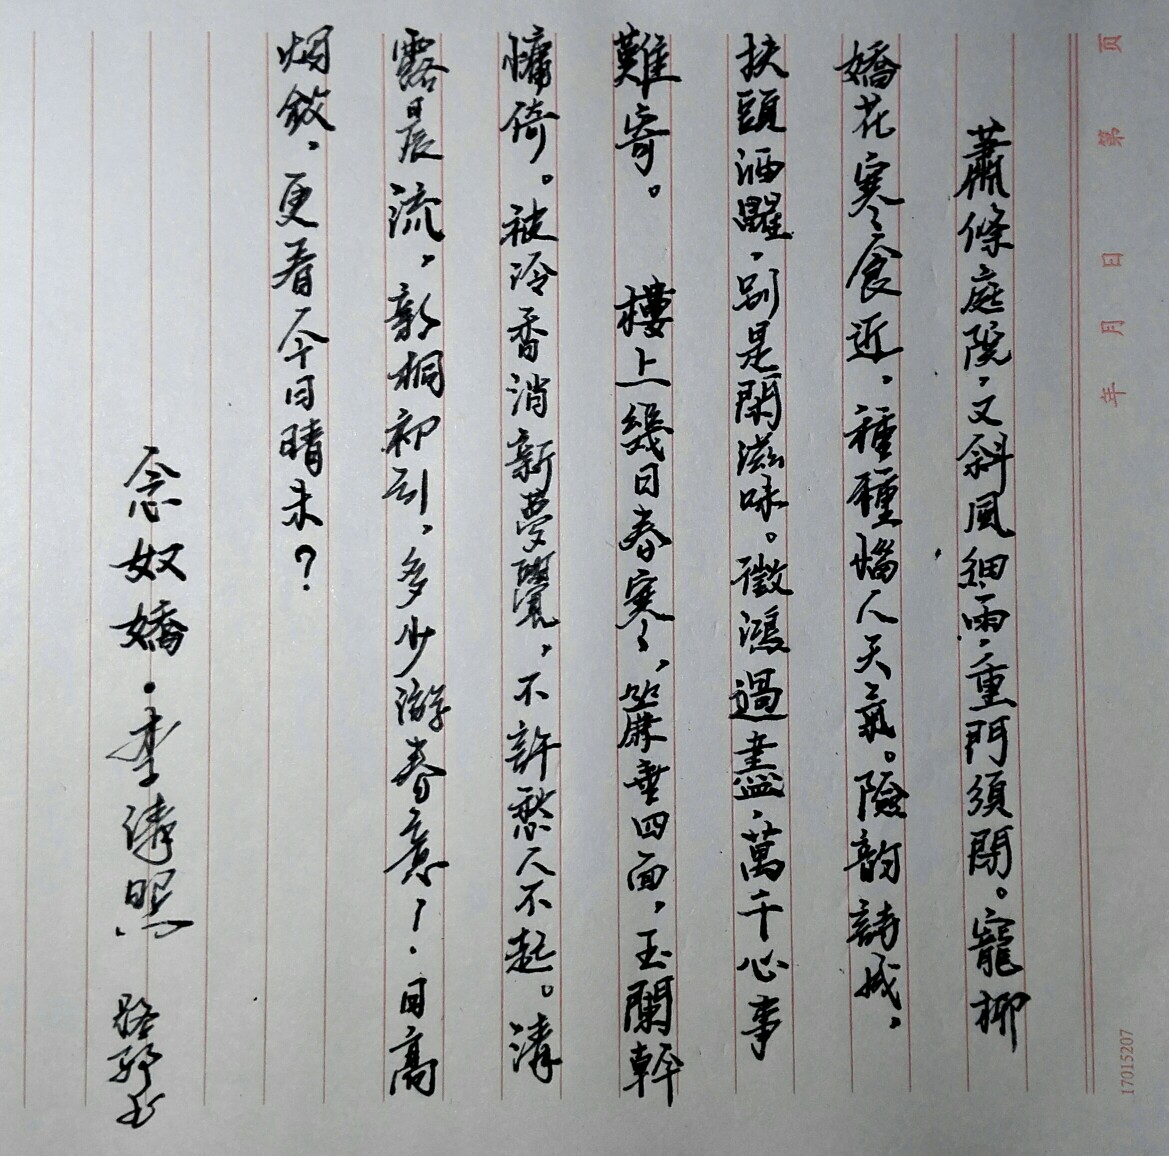 页 第 日 月 年
蕭條庭院,又斜風細雨,重門須閉。寵柳
嬌花寒食近,種種惱人天氣。險韵詩成,
扶頭酒醒,别是閑滋味。徵鴻過盡,萬千心事
難寄。 樓上幾日春寒,簾垂四面,玉闌幹
慵倚。被冷香消新夢覺,不許愁人不起。清
露晨流,新桐初引,多少游春意!日高
烟斂,更看今日晴未?
念奴嬌·李清照
17015207